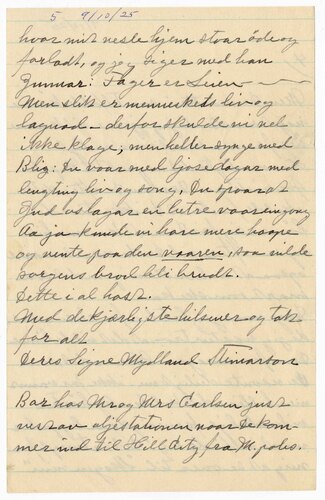 5 9/10/25
hvor mit nesle hjem stvar øde og
forladt, og jeg siger med han
Gunnar: Fager er Lien
Men slik er menneskets liv og
lagnad - derfor skulde vi vel
ikke klage, men heller synge med
Blix: Du voar med ljose dagar med
lengting liv og song, Du spaar at
Gud os lagar en betre vaar eingong
Aa ja - kunde vi bare mere haape
og vente paa den vaaren, saa vilde
sorgens brod bli brudt.
Dette i al hast.
Med de kjærligste hilsener og tak
for alt
Deres Signe Mydland Steinarson
Bor hos Mr og Mrs Carlsen just
vest av oljestationen naar De kom-
mer ind til Hill City fra M. polis.